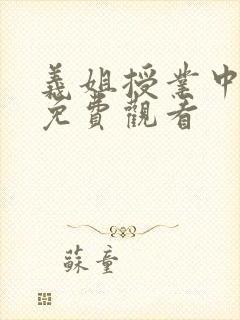 義姐授業中
免費觀看
蘇童